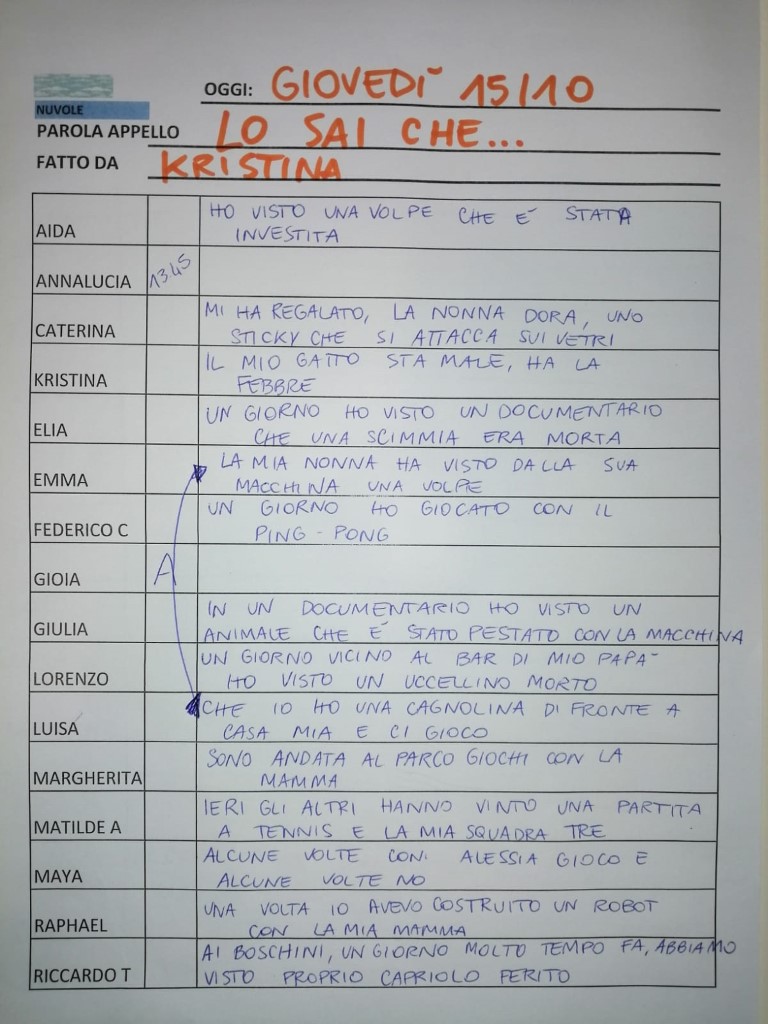 OGGI: GIOVEDI 15/10
NUVOLE
PAROLA APPELLO LO SAI CHE...
FATTO DA KRISTINA
HO VISTO UNA VOLPE CHE È STATA
AIDA INVESTITA
ANNALUCIA 13.45
MI HA REGALATO, LA NONNA DORA, UNO
CATERINA STICKY CHE SI ATTACCA SUI VETRI
IL MIO GATTO STA MALE, HA LA
KRISTINA FEBBRE
UN GIORNO HO VISTO UN DOCUMENTARIO
ELIA CHE UNA SCIMMIA ERA MORTA
LA MIA NONNA HA VISTO DALLA SUA
EMMA MACCHINA UNA VOLPE
UN GIORNO HO GIOCATO CON IL
FEDERICO C PING-PONG
GIOIA A
IN UN DOCUMENTARIO HO VISTO UN
GIULIA ANIMALE CHE È STATO PESTATO CON LA MACCHINA
UN GIORNO VICINO AL BAR DI MIO PAPÀ
LORENZO HO VISTO UN UCCELLINO MORTO
CHE IO HO UNA CAGNOLINA DI FRONTE A
LUISA CASA MIA E CI GIOCO
SONO ANDATA AL PARCO GIOCHI CON LA
MARGHERITA MAMMA
IERI GLI ALTRI HANNO VINTO UNA PARTITA
MATILDE A A TENNIS E LA MIA SQUADRA TRE
ALCUNE VOLTE CON ALESSIA GIOCO E
MAYA ALCUNE VOLTE NO
UNA VOLTA IO AVEVO COSTRUITO UN ROBOT
RAPHAEL CON LA MIA MAMMA
AI BOSCHINI, UN GIORNO MOLTO TEMPO FA, ABBIAMO
RICCARDO T VISTO PROPRIO CAPRIOLO FERITO